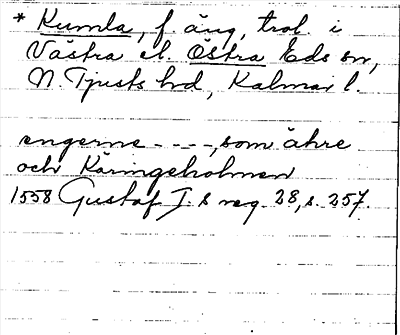 * Kumla, f. äng, trol. i
Västra el. Östra Eds sn,
N. Tjusts hd, Kalmar l.
engerne - - - -, som ähre
och Käringeholmen
1558 Gustaf I. s reg. 28, s. 257.